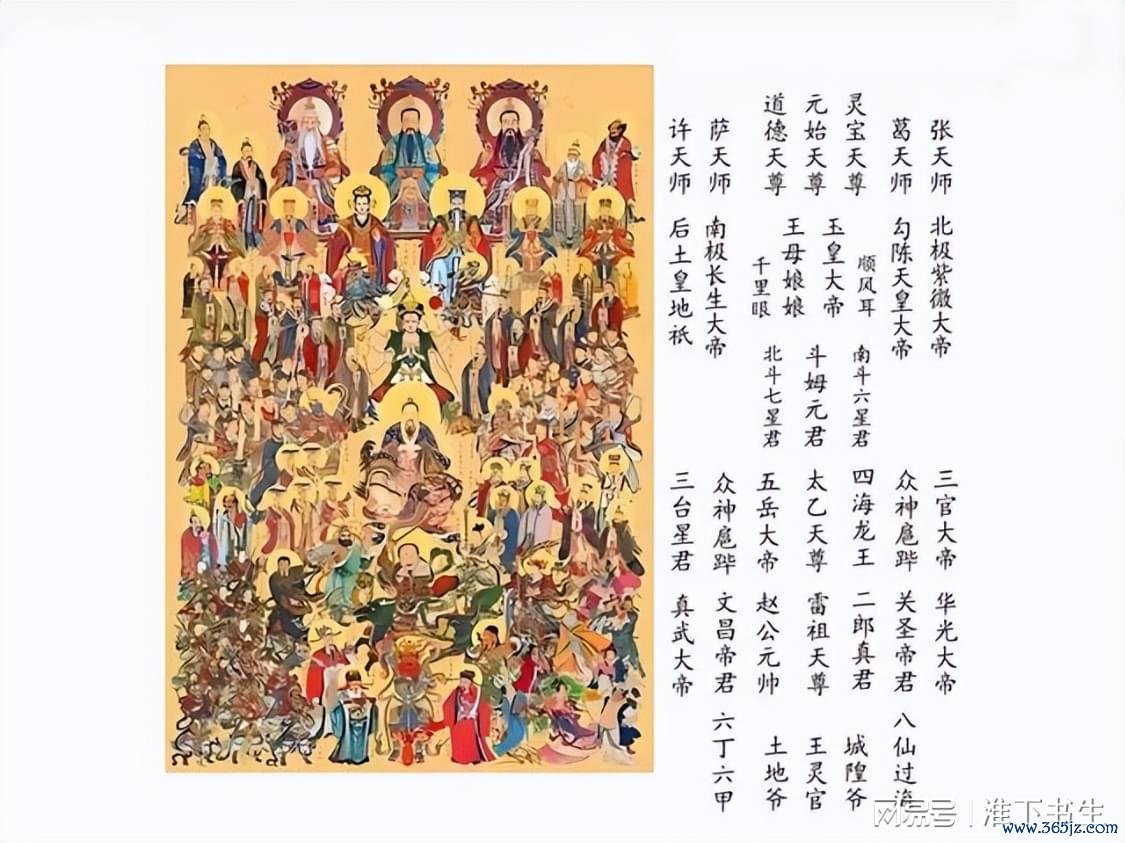 张天师
葛天师
灵宝天尊
元始天尊
道德天尊
萨天师
许天师
北极紫微大帝
勾陈天皇大帝
顺风耳
玉皇大帝
王母娘娘
千里眼
南极长生大帝
后土皇地祇
南斗六星君
斗姆元君
北斗七星君
三官大帝
众神扈跸
四海龙王
太乙天尊
五岳大帝
众神扈跸
三台星君
华光大帝
关圣帝君
二郎真君
雷祖天尊
赵公元帅
文昌帝君
真武大帝
八仙过海
城隍爷
王灵官
土地爷
六丁六甲
网易号 | 淮下书生
www.365jz.com